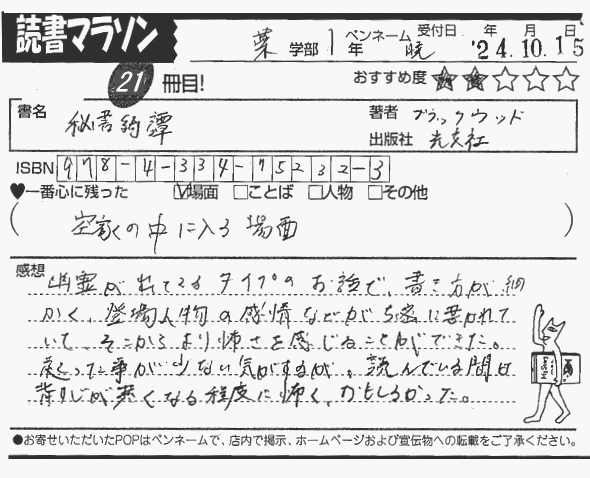 読書マラソン
薬 学部 1 年 ペンネーム 暁 受付日 '24年10月15日
21 冊目! おすすめ度 ★★☆☆☆
書名 秘書綺譚 著者 ブラックウッド
出版社 光文社
ISBN 978-4-334-75232-3
♥一番心に残った ☑場面 □ことば □人物 □その他
( 空家の中に入る場面 )
感想 幽霊が出てくるタイプのお話で、書き方が細
かく、登場人物の感情などが写実に書かれて
いて、そこからより怖さを感じることができた。
起こった事が少ない気がするが、読んでいる間は
背すじが寒くなる程度に怖く、おもしろかった。
●お寄せいただいたPOPはペンネームで、店内で掲示、ホームページおよび宣伝物への転載をご了承ください。